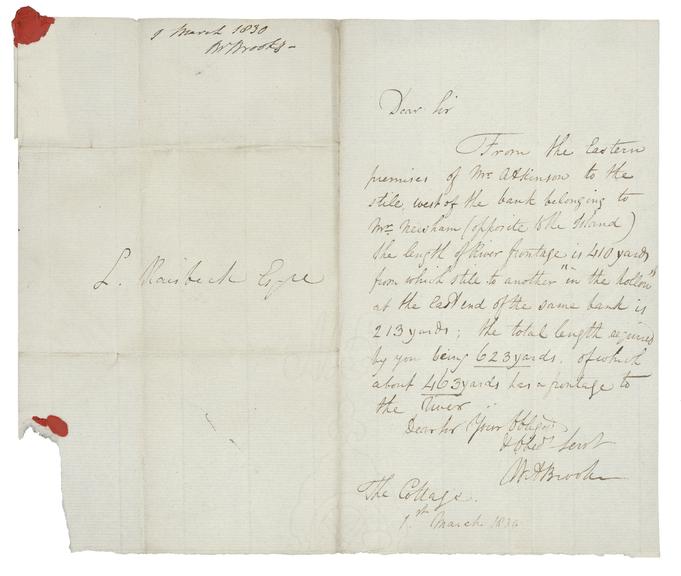 1 March 1830
Mr Brooks -
L. Raisbeck Esqre
Dear Sir
From the Eastern
premises of Mr Atkinson to the
stile west of the bank belonging to
Mrs Newsham (opposite to the Island)
the length of River frontage is 410 yards
from which stile to another "in the hollow"
at the East end of the same bank is
213 yards; the total length required
by you being 623 yards, of which
about 463 yards has a frontage to
the River
Dear Sir Your Obliged
& Obedt Servt
Brooks
The Cottage.
1st March 1830